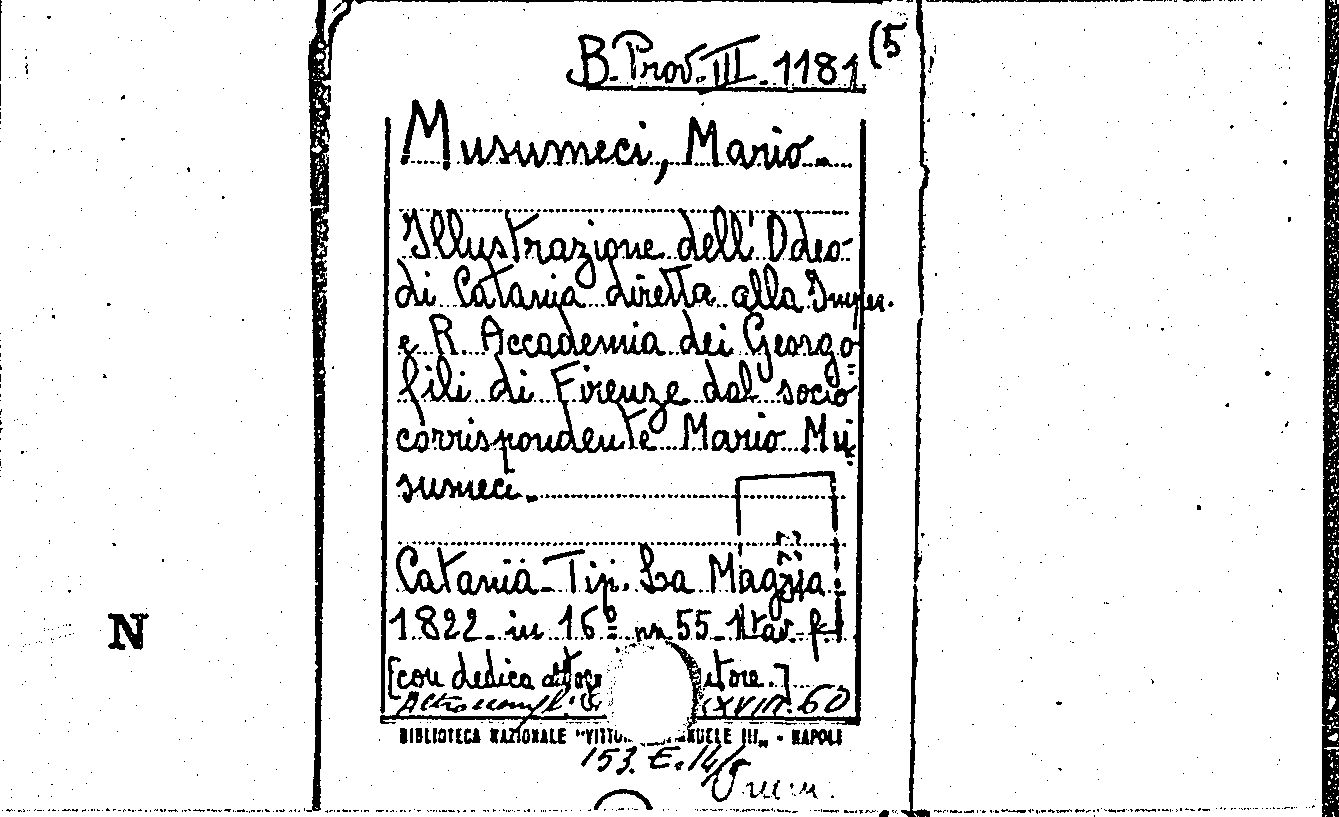 B. Prov. III. 1181 (5
Musumeci, Mario
Illustrazione dell'Odeo
di Catania diretta alla Imper.
e R. Accademia dei Georgo=
fili di Firenze dal socio
corrispondente Mario Mu=
sumeci.
Catania - Tip. La Magna
1822 - in 16º pp. 55 - 1 tav. f.t.
[con dedica utore.]
XXVIII. 60
BIBLIOTECA NAZIONALE "VITTO NUELE III„ - NAPOLI
N
153. E. 14/